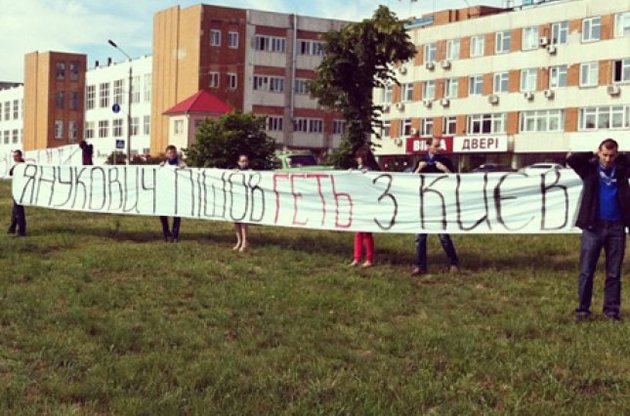 ДВЕРІ
ЯНУКОВИЧ ПІШОВ ГЕТЬ З КИЄВ